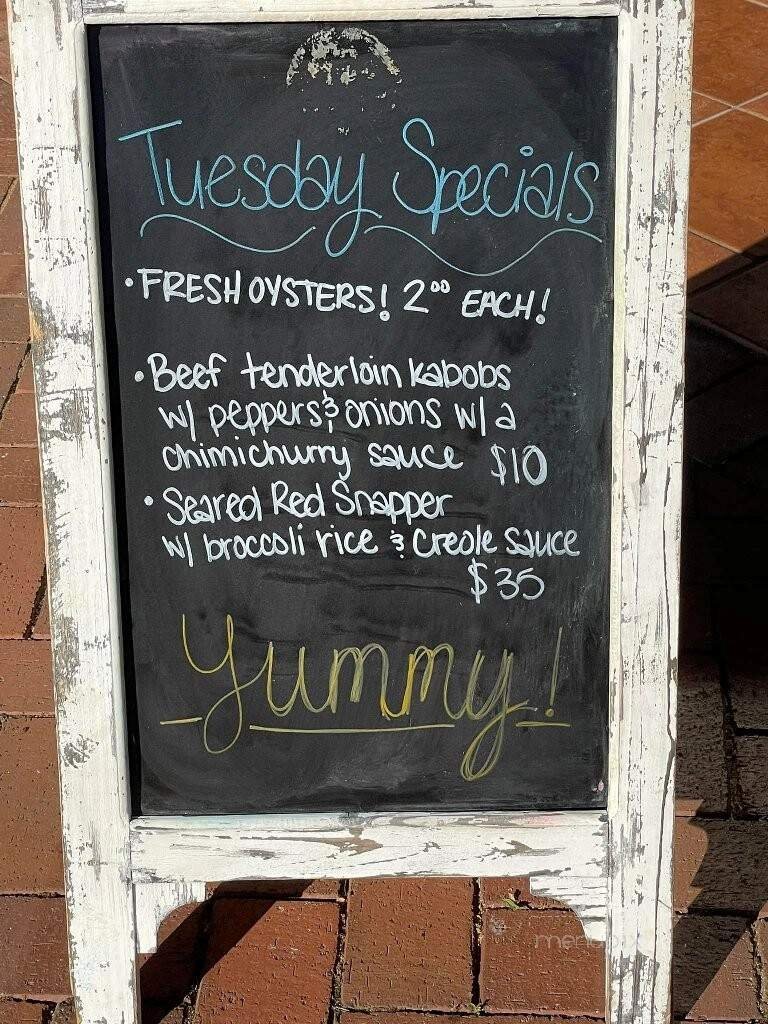 Tuesday Specials
• FRESH OYSTERS! 2⁰⁰ EACH!
• Beef tenderloin kabobs
w/ peppers & onions w/ a
chimichurry sauce $10
• Seared Red Snapper
w/ broccoli rice & creole sauce
$35
Yummy!